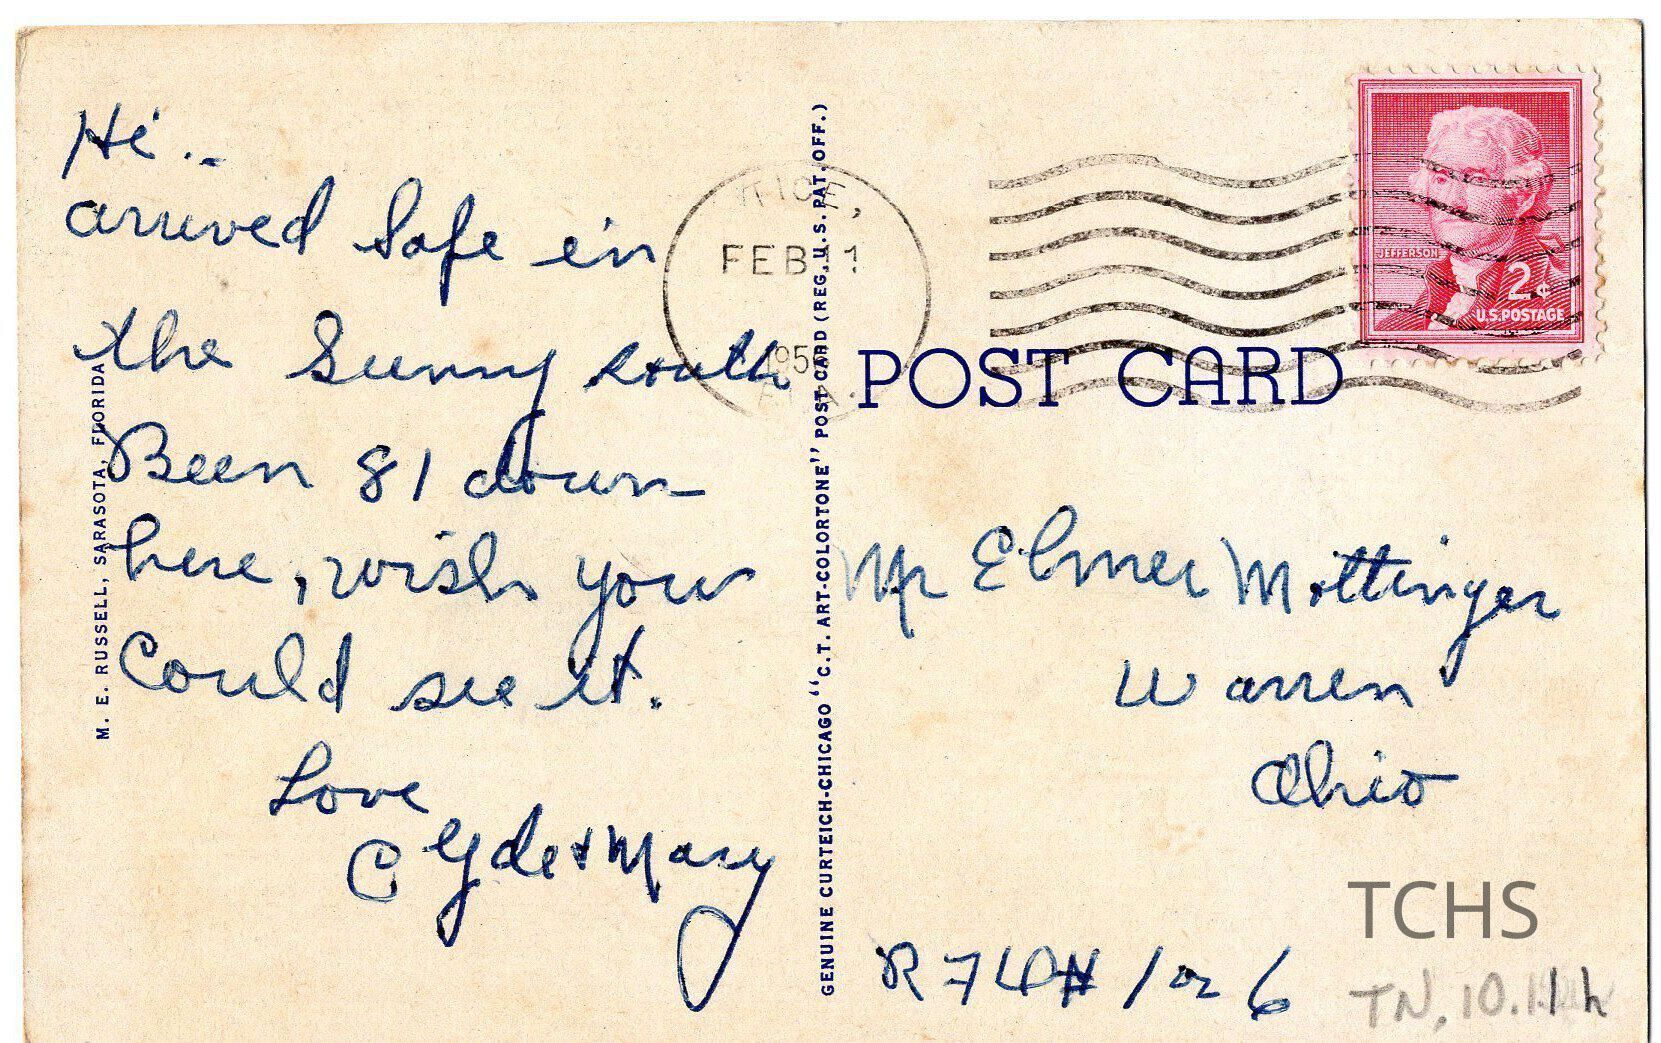 Hi..
arrived Safe in
the Sunny south
Been 81 down
here, wish you
Could see it.
Love
Clyde & Mary
M. E. RUSSELL, SARASOTA, FLORIDA
GENUINE CURTEICH-CHICAGO "C.T. ART-COLORTONE" POST CARD (REG. U.S. PAT. OFF.)
FEB 1
JEFFERSON
2¢
U.S. POSTAGE
POST CARD
Mr Elmer Mottinger
Warren
Ohio
R F D # 1 or 6
TCHS